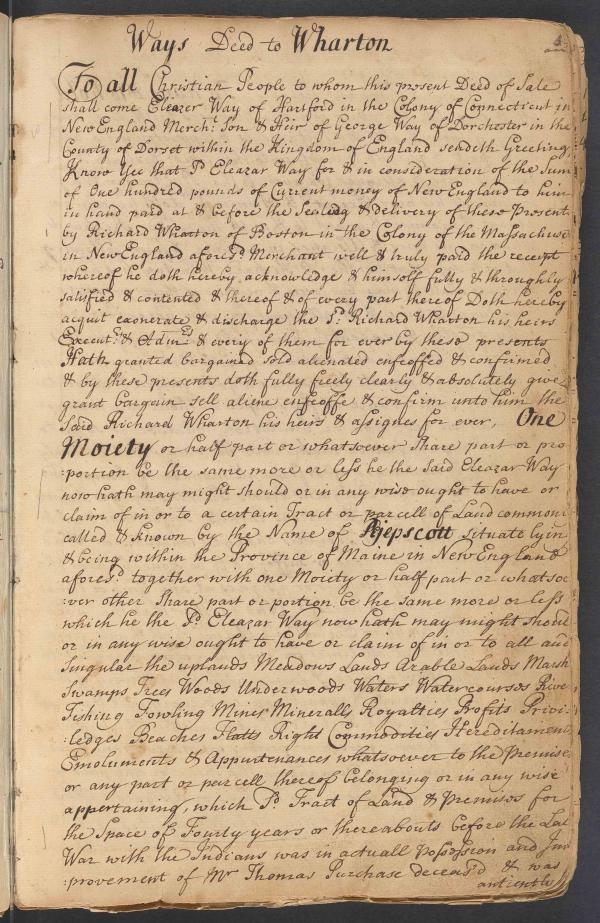 Ways Deed to Wharton
To all Christian People to whom this present Deed of Sale
shall come Eleazer Way of Hartford in the Colony of Connecticut in
New England Merch.t Son & Heir of George Way of Dorchester in the
County of Dorset within the Kingdom of England sendeth Greeting
Know Yee that S.d Eleazar Way for & in consideration of the Sum
of One hundred pounds of Current money of New England to him
in hand paid at & before the Sealing & delivery of these Present
by Richard Wharton of Boston in the Colony of the Massachuse
in New England afores.d Merchant well & truly paid the receipt
whereof he doth hereby acknowledge & himself fully & throughly
satisfied & contented & thereof & of every part thereof Doth hereby
acquit exonerate & discharge the S.d Richard Wharton his heirs
Execut.rs & Admin.rs & every of them for ever by these presents
Hath granted bargained sold alienated enfeoffed & confirmed
& by these presents doth fully freely clearly & absolutely give
grant bargain sell aliene enfeoffe & confirm unto him the
said Richard Wharton his heirs & assignes for ever, One
Moiety or half part or whatsoever Share part or pro
:portion be the same more or less he the Said Eleazar Way
now hath may might should or in any wise ought to have or
claim of in or to a certain Tract or parcell of Land common
called & known by the Name of Pejepscott situate lyin
& being within the Province of Maine in New England
afores.d together with one Moiety or half part or whatsoe
:ver other Share part or portion be the same more or less
which he the S.d Eleazar Way now hath may might should
or in any wise ought to have or claim of in or to all and
Singular the uplands Meadows Lands Arable Lands Marsh
Swamps Trees Woods Underwoods Waters Watercourses Rive
Fishing Fowling Mines Mineralls Royalties Profits Privi
:ledges Beaches Flatts Right Commodities Hereditament
Emoluments & Appurtenances whatsoever to the Premise
or any part or parcell thereof belonging or in any wise
appertaining, which S.d Tract of Land & Premises for
the Space of Fourty years or thereabouts before the Late
War with the Indians was in actuall Possession and Jm
:provement of Mr Thomas Purchase deceas'd & was
antiently